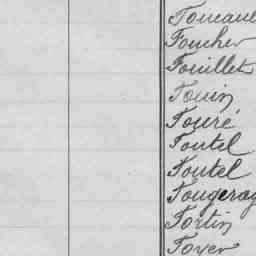 Foucault
Foucher
Fouillet
Fouin
Fouré
Foutel
Foutel
Fougeray
Fortin
Foyer